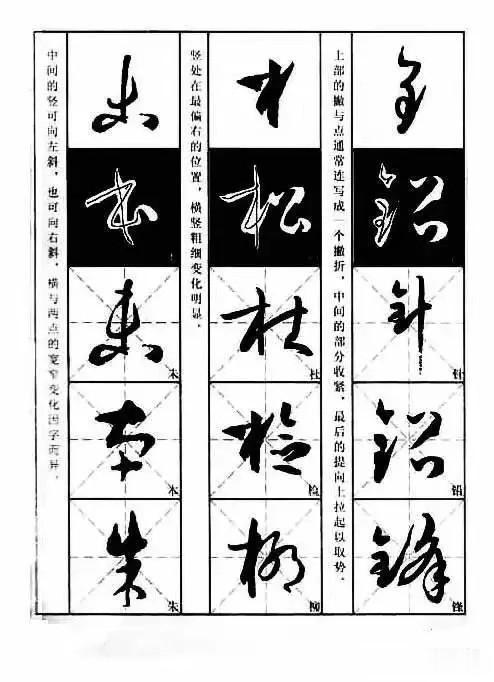 上部的撇与点通常连写成一个撇折，中间的部分收紧，最后的提向上拉起以取势。
针
铅
锋
竖处在最偏右的位置，横竖粗细变化明显。
松
杜
检
柳
中间的竖可向左斜，也可向右斜，横与两点的宽窄变化因字而异。
本
朱